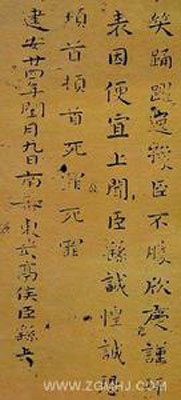 笑踊躍逸豫臣不勝欣慶謹拜
表因便宜上聞臣繇誠惶誠恐
頓首頓首死罪死罪
建安廿四年閏月九日南蕃東武亭侯臣繇上
WWW.ZGMHJ.COM